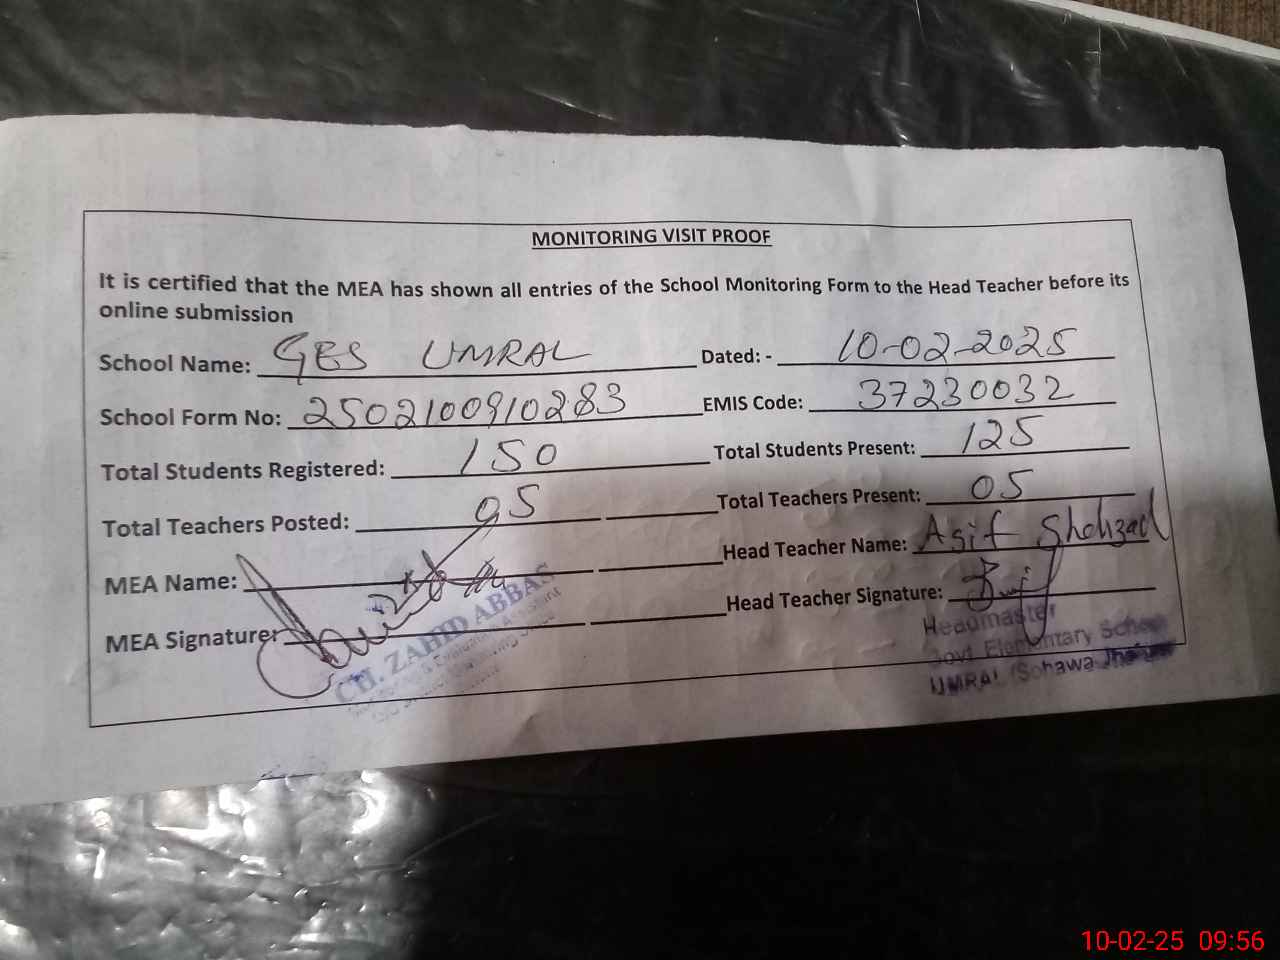 MONITORING VISIT PROOF
It is certified that the MEA has shown all entries of the School Monitoring Form to the Head Teacher before its
online submission
School Name: GES UMRAL Dated: - 10-02-2025
School Form No: 2502100910283 EMIS Code: 37230032
Total Students Registered: 150 Total Students Present: 125
Total Teachers Posted: 05 Total Teachers Present: 05
MEA Name: Head Teacher Name: Asif Shehzad
MEA Signature: Head Teacher Signature:
CH. ZAHID ABBAS
& Evaluation Assistant
Headmaster
Govt Elementary School
UMRAL (Sohawa Jhelum
10-02-25 09:56